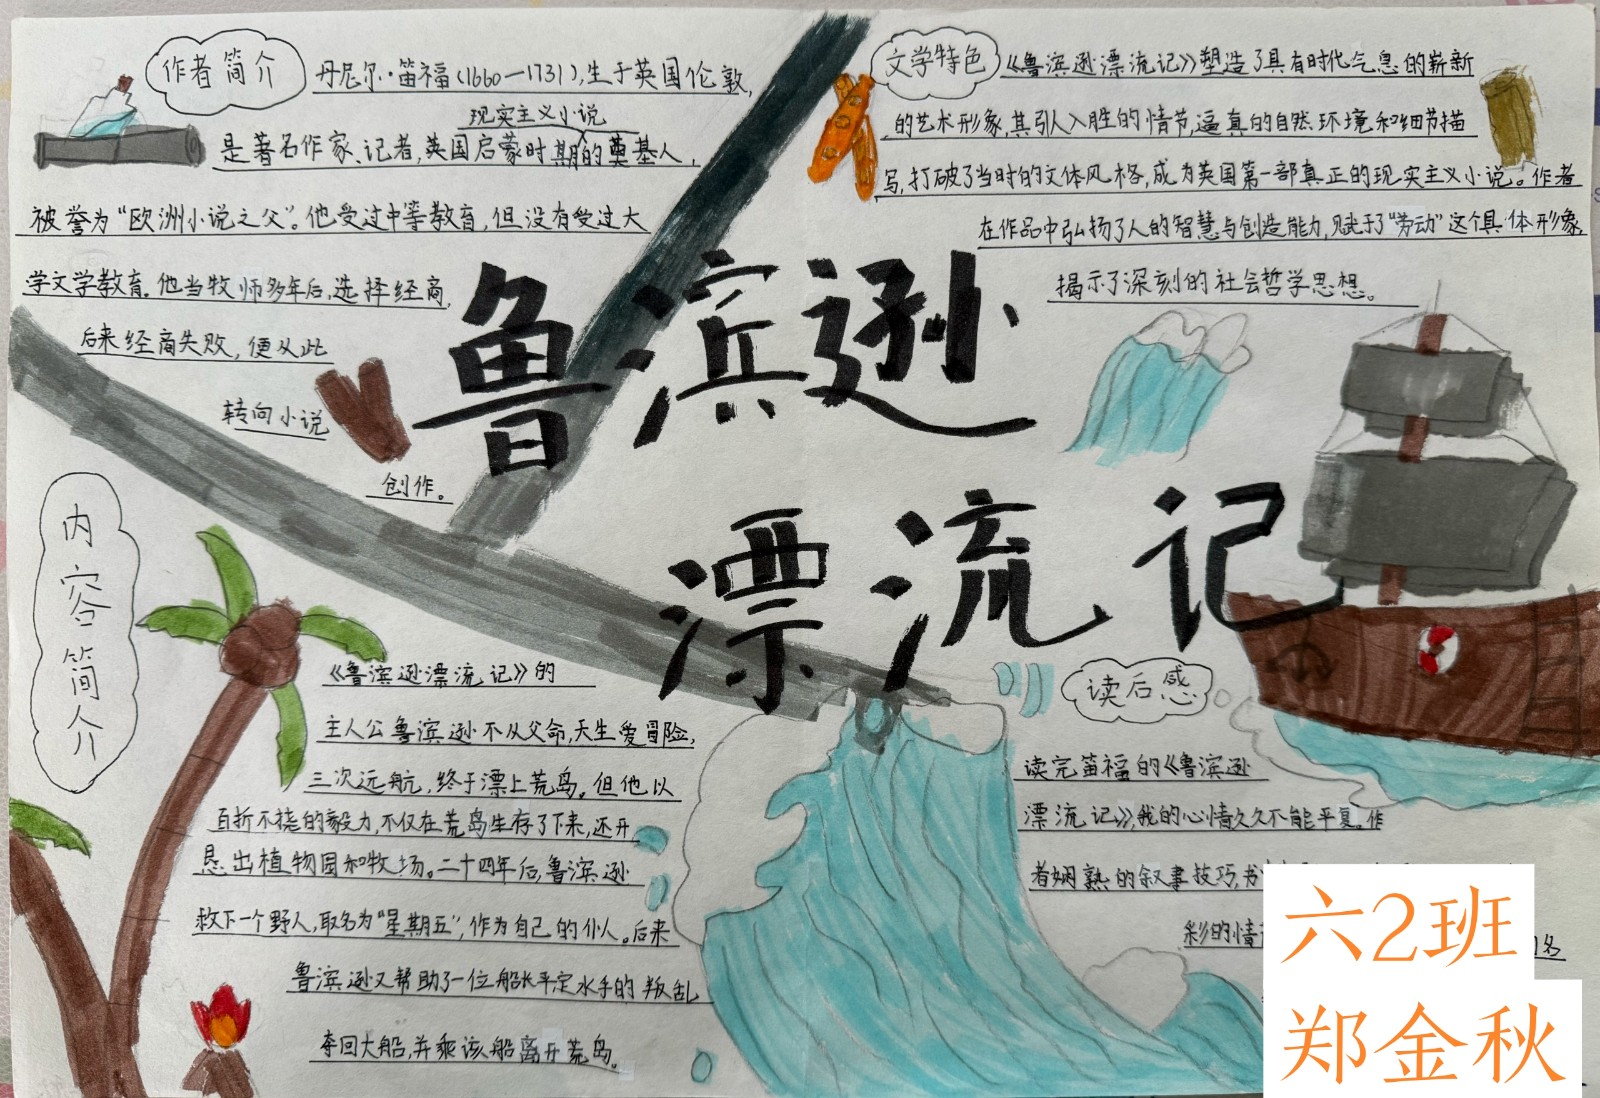 作者简介
丹尼尔·笛福(1660—1731),生于英国伦敦,
现实主义小说
是著名作家、记者,英国启蒙时期的奠基人,
被誉为“欧洲小说之父”。他受过中等教育,但没有受过大
学文学教育。他当牧师多年后,选择经商,
后来经商失败,便从此
转向小说
创作。
文学特色
《鲁滨逊漂流记》塑造了具有时代气息的崭新
的艺术形象,其引人入胜的情节,逼真的自然环境和细节描
写,打破了当时的文体风格,成为英国第一部真正的现实主义小说。作者
在作品中弘扬了人的智慧与创造能力,赋予了“劳动”这个具体形象,
揭示了深刻的社会哲学思想。
鲁滨逊
漂流记
内容简介
《鲁滨逊漂流记》的
主人公鲁滨逊不从父命,天生爱冒险,
三次远航,终于漂上荒岛。但他以
百折不挠的毅力,不仅在荒岛生存了下来,还开
恳出植物园和牧场。二十四年后,鲁滨逊
救下一个野人,取名为“星期五”,作为自己的仆人。后来
鲁滨逊又帮助了一位船长平定水手的叛乱
夺回大船,并乘该船离开荒岛。
读后感
读完笛福的《鲁滨逊
漂流记》,我的心情久久不能平复。作
者娴熟的叙事技巧,书
彩的情
名
六2班
郑金秋